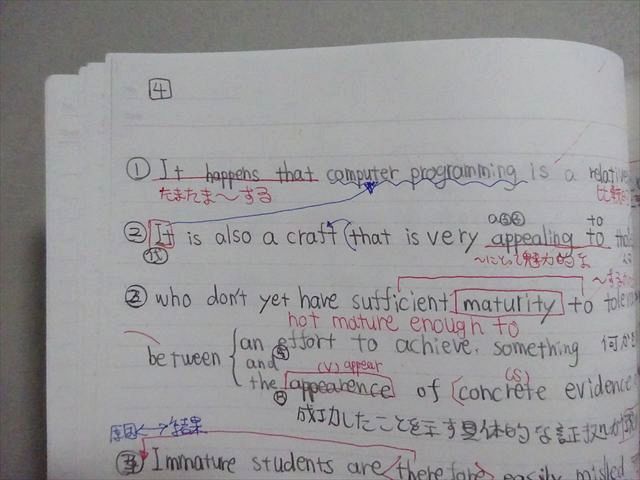 4
① It happens that computer programming is a
たまたま〜する
a 형 to
② It is also a craft (that is very appealing to
代 〜にとって魅力的な
③ who don't yet have sufficient maturity to
not mature enough to
between { an effort to achieve something 何か
and (V) appear (S)
the appearence of (concrete evidence
成功したことを示す具体的な証拠
原因⟷結果
Immature students are <therefore> easily misled